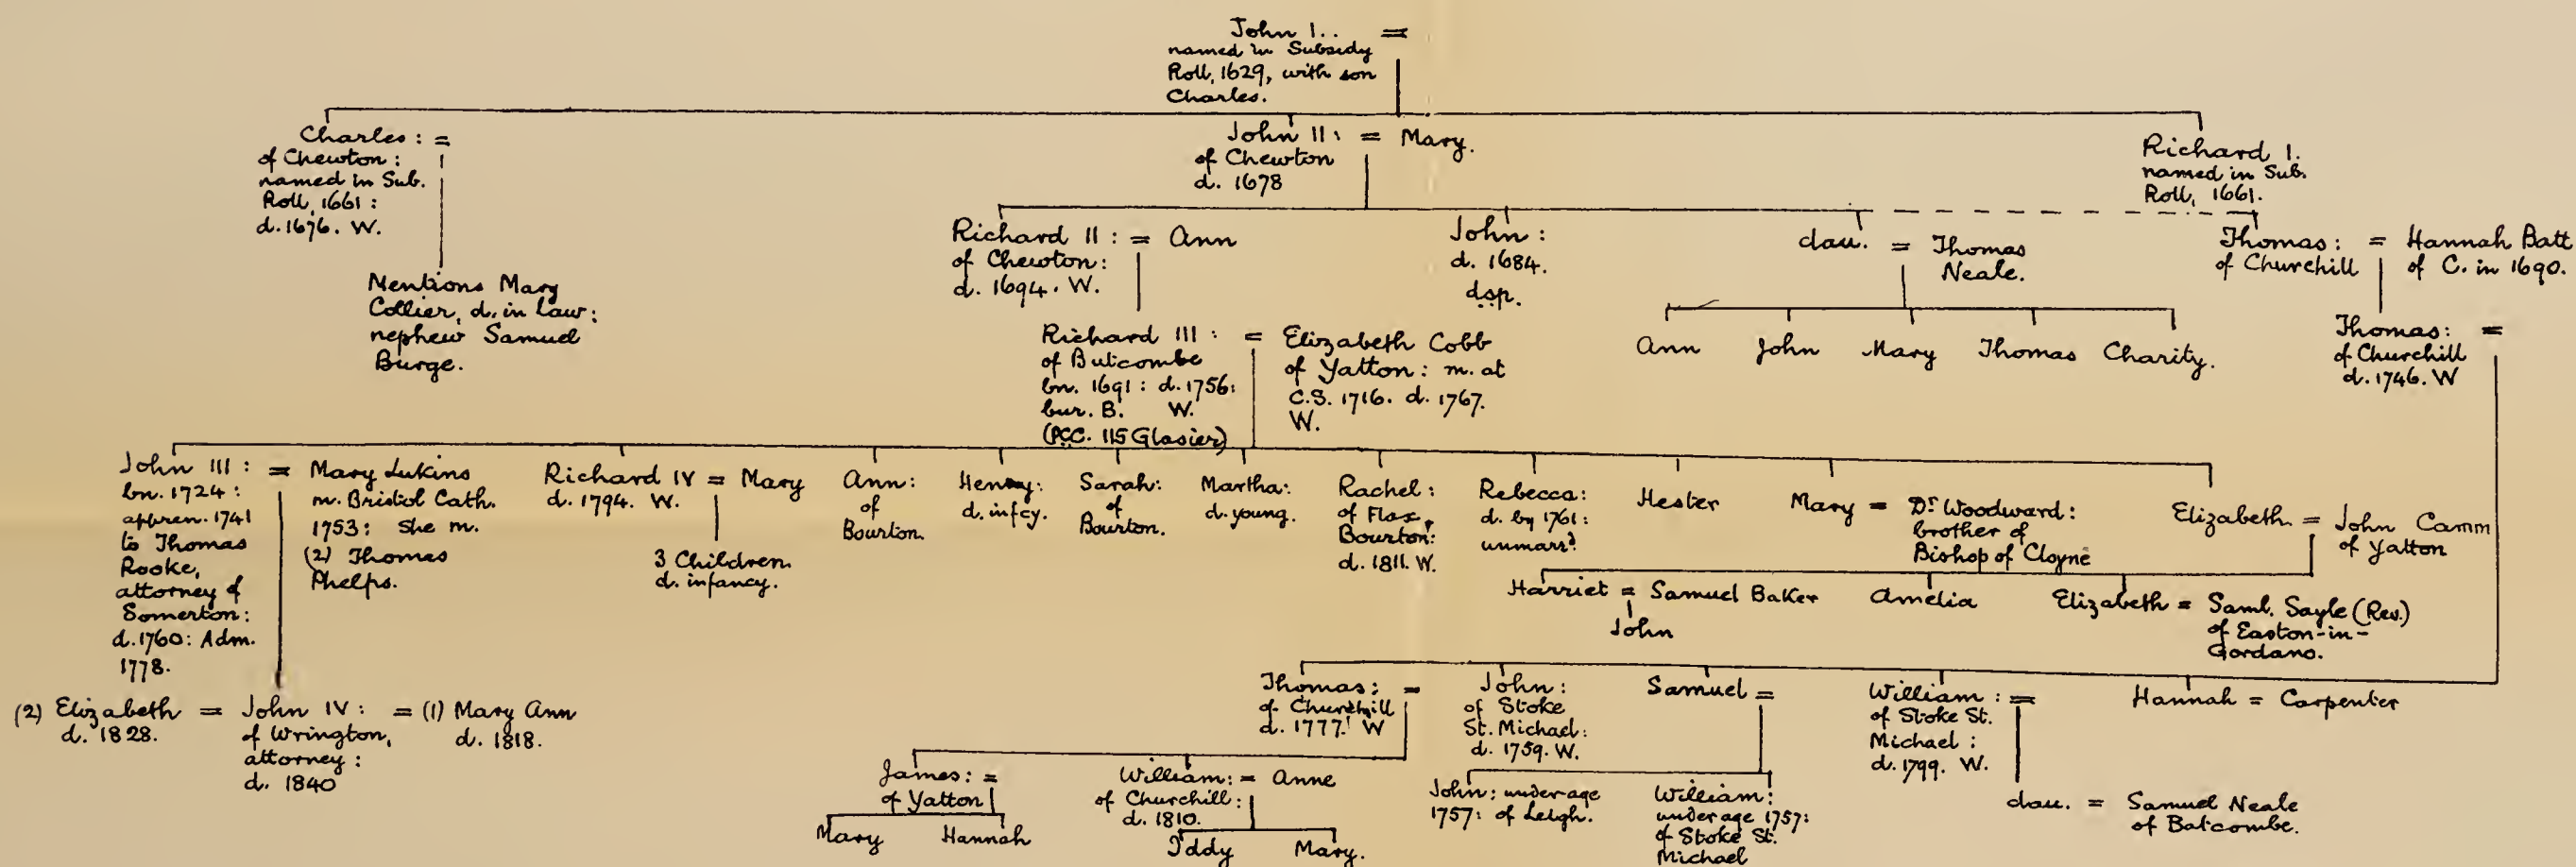 John I.. =
named in Subsidy
Roll, 1629, with son
Charles.
Charles: =
of Chewton:
named in Sub.
Roll, 1661:
d. 1676. W.
Mentions Mary
Collier, d. in law:
nephew Samuel
Burge.
John II: = Mary.
of Chewton
d. 1678
Richard I.
named in Sub.
Roll, 1661.
Richard II: = Ann
of Chewton:
d. 1694. W.
John:
d. 1684.
dsp.
dau. = Thomas
Neale.
Thomas: = Hannah Batt
of Churchill of C. in 1690.
Richard III: = Elizabeth Cobb
of Butcombe of Yatton: m. at
bn. 1691: d. 1756: C.S. 1716. d. 1767.
bur. B. W. W.
(PCC. 115 Glasier)
Ann John Mary Thomas Charity.
Thomas: =
of Churchill
d. 1746. W
John III: =
bn. 1724:
appren. 1741
to Thomas
Rooke,
attorney of
Somerton:
d. 1760: Adm.
1778.
Mary Lukins
m. Bristol Cath.
1753: She m.
(2) Thomas
Phelps.
Richard IV = Mary
d. 1794. W.
3 Children
d. infancy.
Ann:
of
Bourton.
Henry:
d. infcy.
Sarah:
of
Bourton.
Martha:
d. young.
Rachel:
of Flax,
Bourton:
d. 1811. W.
Rebecca:
d. by 1761:
unmarrd.
Hester
Mary = Dr. Woodward:
brother of
Bishop of Cloyne
Elizabeth = John Camm
of Yatton
Harriet = Samuel Baker
John
Amelia
Elizabeth = Saml. Sayle (Rev.)
of Easton-in-
Gordano.
(2) Elizabeth = John IV: = (1) Mary Ann
d. 1828. of Wrington, d. 1818.
attorney:
d. 1840
Thomas: =
of Churchill
d. 1777. W
John:
of Stoke
St. Michael:
d. 1759. W.
Samuel =
William: =
of Stoke St.
Michael:
d. 1799. W.
Hannah = Carpenter
James: =
of Yatton
William: = Anne
of Churchill:
d. 1810.
John: under age
1757: of Leigh.
William:
under age 1757:
of Stoke St.
Michael
dau. = Samuel Neale
of Batcombe.
Mary Hannah
Iddy Mary.